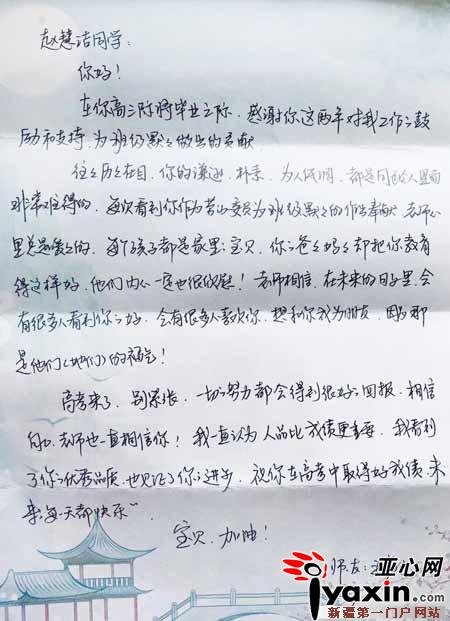 赵慧洁同学：
你好！
在你高三际将毕业之际，感谢你这两年对我工作之鼓
励和支持，为班级默々做出的贡献
往々历々在目，你的谦逊、朴素、为人低调，都是同龄人里面
非常难得的，每次看到你作为劳动委员为班级默々的作出奉献，老师心
里总是暖々的，每个孩子都是家里之宝贝，你之爸々妈々却把你教育
得这样好，他们内心一定也很欣慰！老师相信，在未来的日子里，会
有很多人看到你之好，会有很多人喜欢你，想和你成为朋友，因为那
是他们（她们）的福气！
高考来了，别紧张，一切之努力都会得到很好之回报，相信
自己，老师也一直相信你！我一直认为人品比成绩更重要，我看到
了你之优秀品质，也见证了你之进步，祝你在高考中取得好成绩，未
来每一天都快乐"
宝贝，加油！
师友：
亚心网
iyaxin.com
新疆第一门户网站